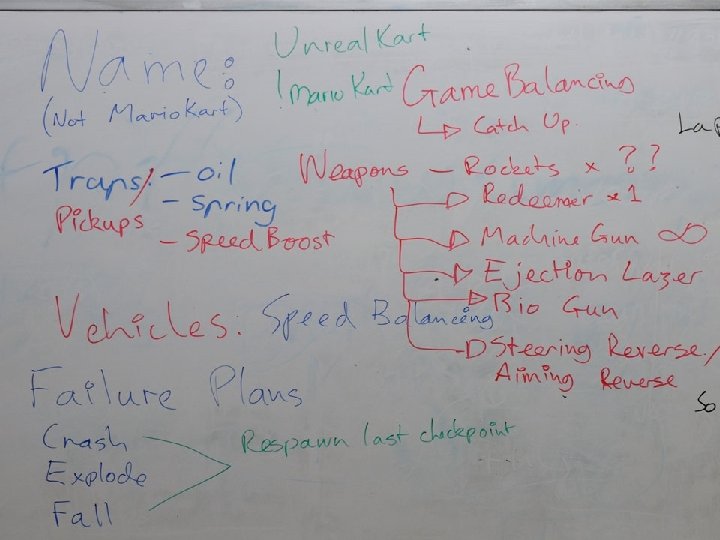 Name:
(Not MarioKart)
UnrealKart
!MarioKart
GameBalancing
Catch Up
Lap
Traps/
Pickups
- Oil
- Spring
- Speed Boost
Weapons - Rockets x ??
Redeemer x1
Machine Gun ∞
Ejection Lazer
Bio Gun
Steering Reverse/
Aiming Reverse
Vehicles: Speed Balancing
So
Failure Plans
Crash
Explode
Fall
Respawn last checkpoint